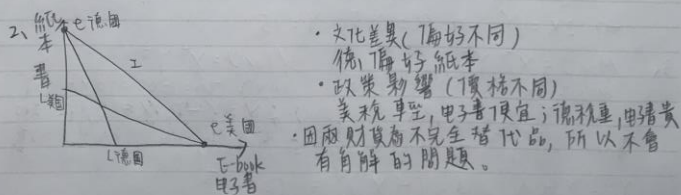 2、紙本書
e德國
I
L美國
e美國
L德國
E-book
電子書
・文化差異(偏好不同)
德,偏好紙本
・政策影響(價格不同)
美稅輕,电子書便宜;德稅重,电子書貴
・因兩財貨為不完全替代品,所以不會
有角解的問題。